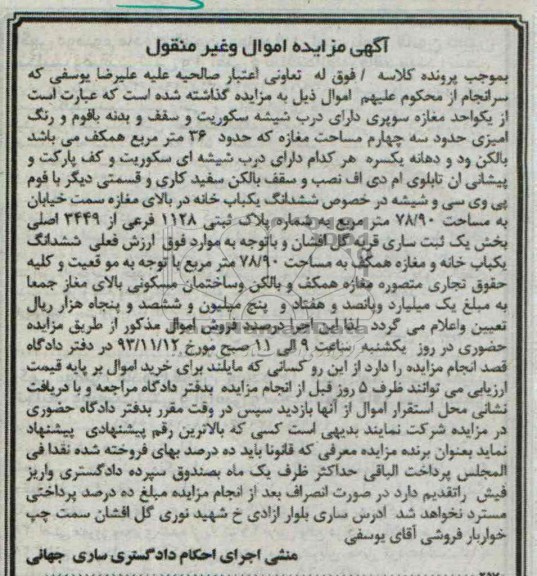 آگهی مزایده اموال وغیر منقول
بموجب پرونده کلاسه / فوق له تعاونی اعتبار صالحیه علیه علیرضا یوسفی که
سرانجام از محکوم علیهم اموال ذیل به مزایده گذاشته شده است که عبارت است
از یکواحد مغازه سوپری دارای درب شیشه سکوریت و سقف و بدنه باقوم و رنگ
امیزی حدود سه چهارم مساحت مغازه که حدود ۳۶ متر مربع همکف می باشد
بالکن ود و دهانه یکسره هر کدام دارای درب شیشه ای سکوریت و کف پارکت و
پیشانی ان تابلوی ام دی اف نصب و سقف بالکن سفید کاری و قسمتی دیگر با فوم
پی وی سی و شیشه در خصوص ششدانگ یکباب خانه در بالای مغازه سمت خیابان
به مساحت ۷۸/۹۰ متر مربع به شماره پلاک ثبتی ۱۱۲۸ فرعی از ۳۴۴۹ اصلی
بخش یک ثبت ساری قریه گل افشان و باتوجه به موارد فوق ارزش فعلی ششدانگ
یکباب خانه و مغازه همکف به مساحت ۷۸/۹۰ متر مربع با توجه به مو قعیت و کلیه
حقوق تجاری متصوره مغازه همکف و بالکن وساختمان مسکونی بالای مغاز جمعا
به مبلغ یک میلیارد وپانصد و هفتاد و پنج میلیون و ششصد و پنجاه هزار ریال
تعیین واعلام می گردد لذا این اجرا درصدد فروش اموال مذکور از طریق مزایده
حضوری در روز یکشنبه ساعت ۹ الی ۱۱ صبح مورخ ۹۳/۱۱/۱۲ در دفتر دادگاه
قصد انجام مزایده را دارد از این رو کسانی که مایلند برای خرید اموال بر پایه قیمت
ارزیابی می توانند ظرف ۵ روز قبل از انجام مزایده بدفتر دادگاه مراجعه و با دریافت
نشانی محل استقرار اموال از آنها بازدید سپس در وقت مقرر بدفتر دادگاه حضوری
در مزایده شرکت نمایند بدیهی است کسی که بالاترین رقم پیشنهادی پیشنهاد
نماید بعنوان برنده مزایده معرفی که قانونا باید ده درصد بهای فروخته شده نقدا فی
المجلس پرداخت الباقی حداکثر ظرف یک ماه بصندوق سپرده دادگستری واریز
فیش راتقدیم دارد در صورت انصراف بعد از انجام مزایده مبلغ ده درصد پرداختی
مسترد نخواهد شد ادرس ساری بلوار ازادی خ شهید نوری گل افشان سمت چپ
خواربار فروشی آقای یوسفی
منشی اجرای احکام دادگستری ساری جهانی